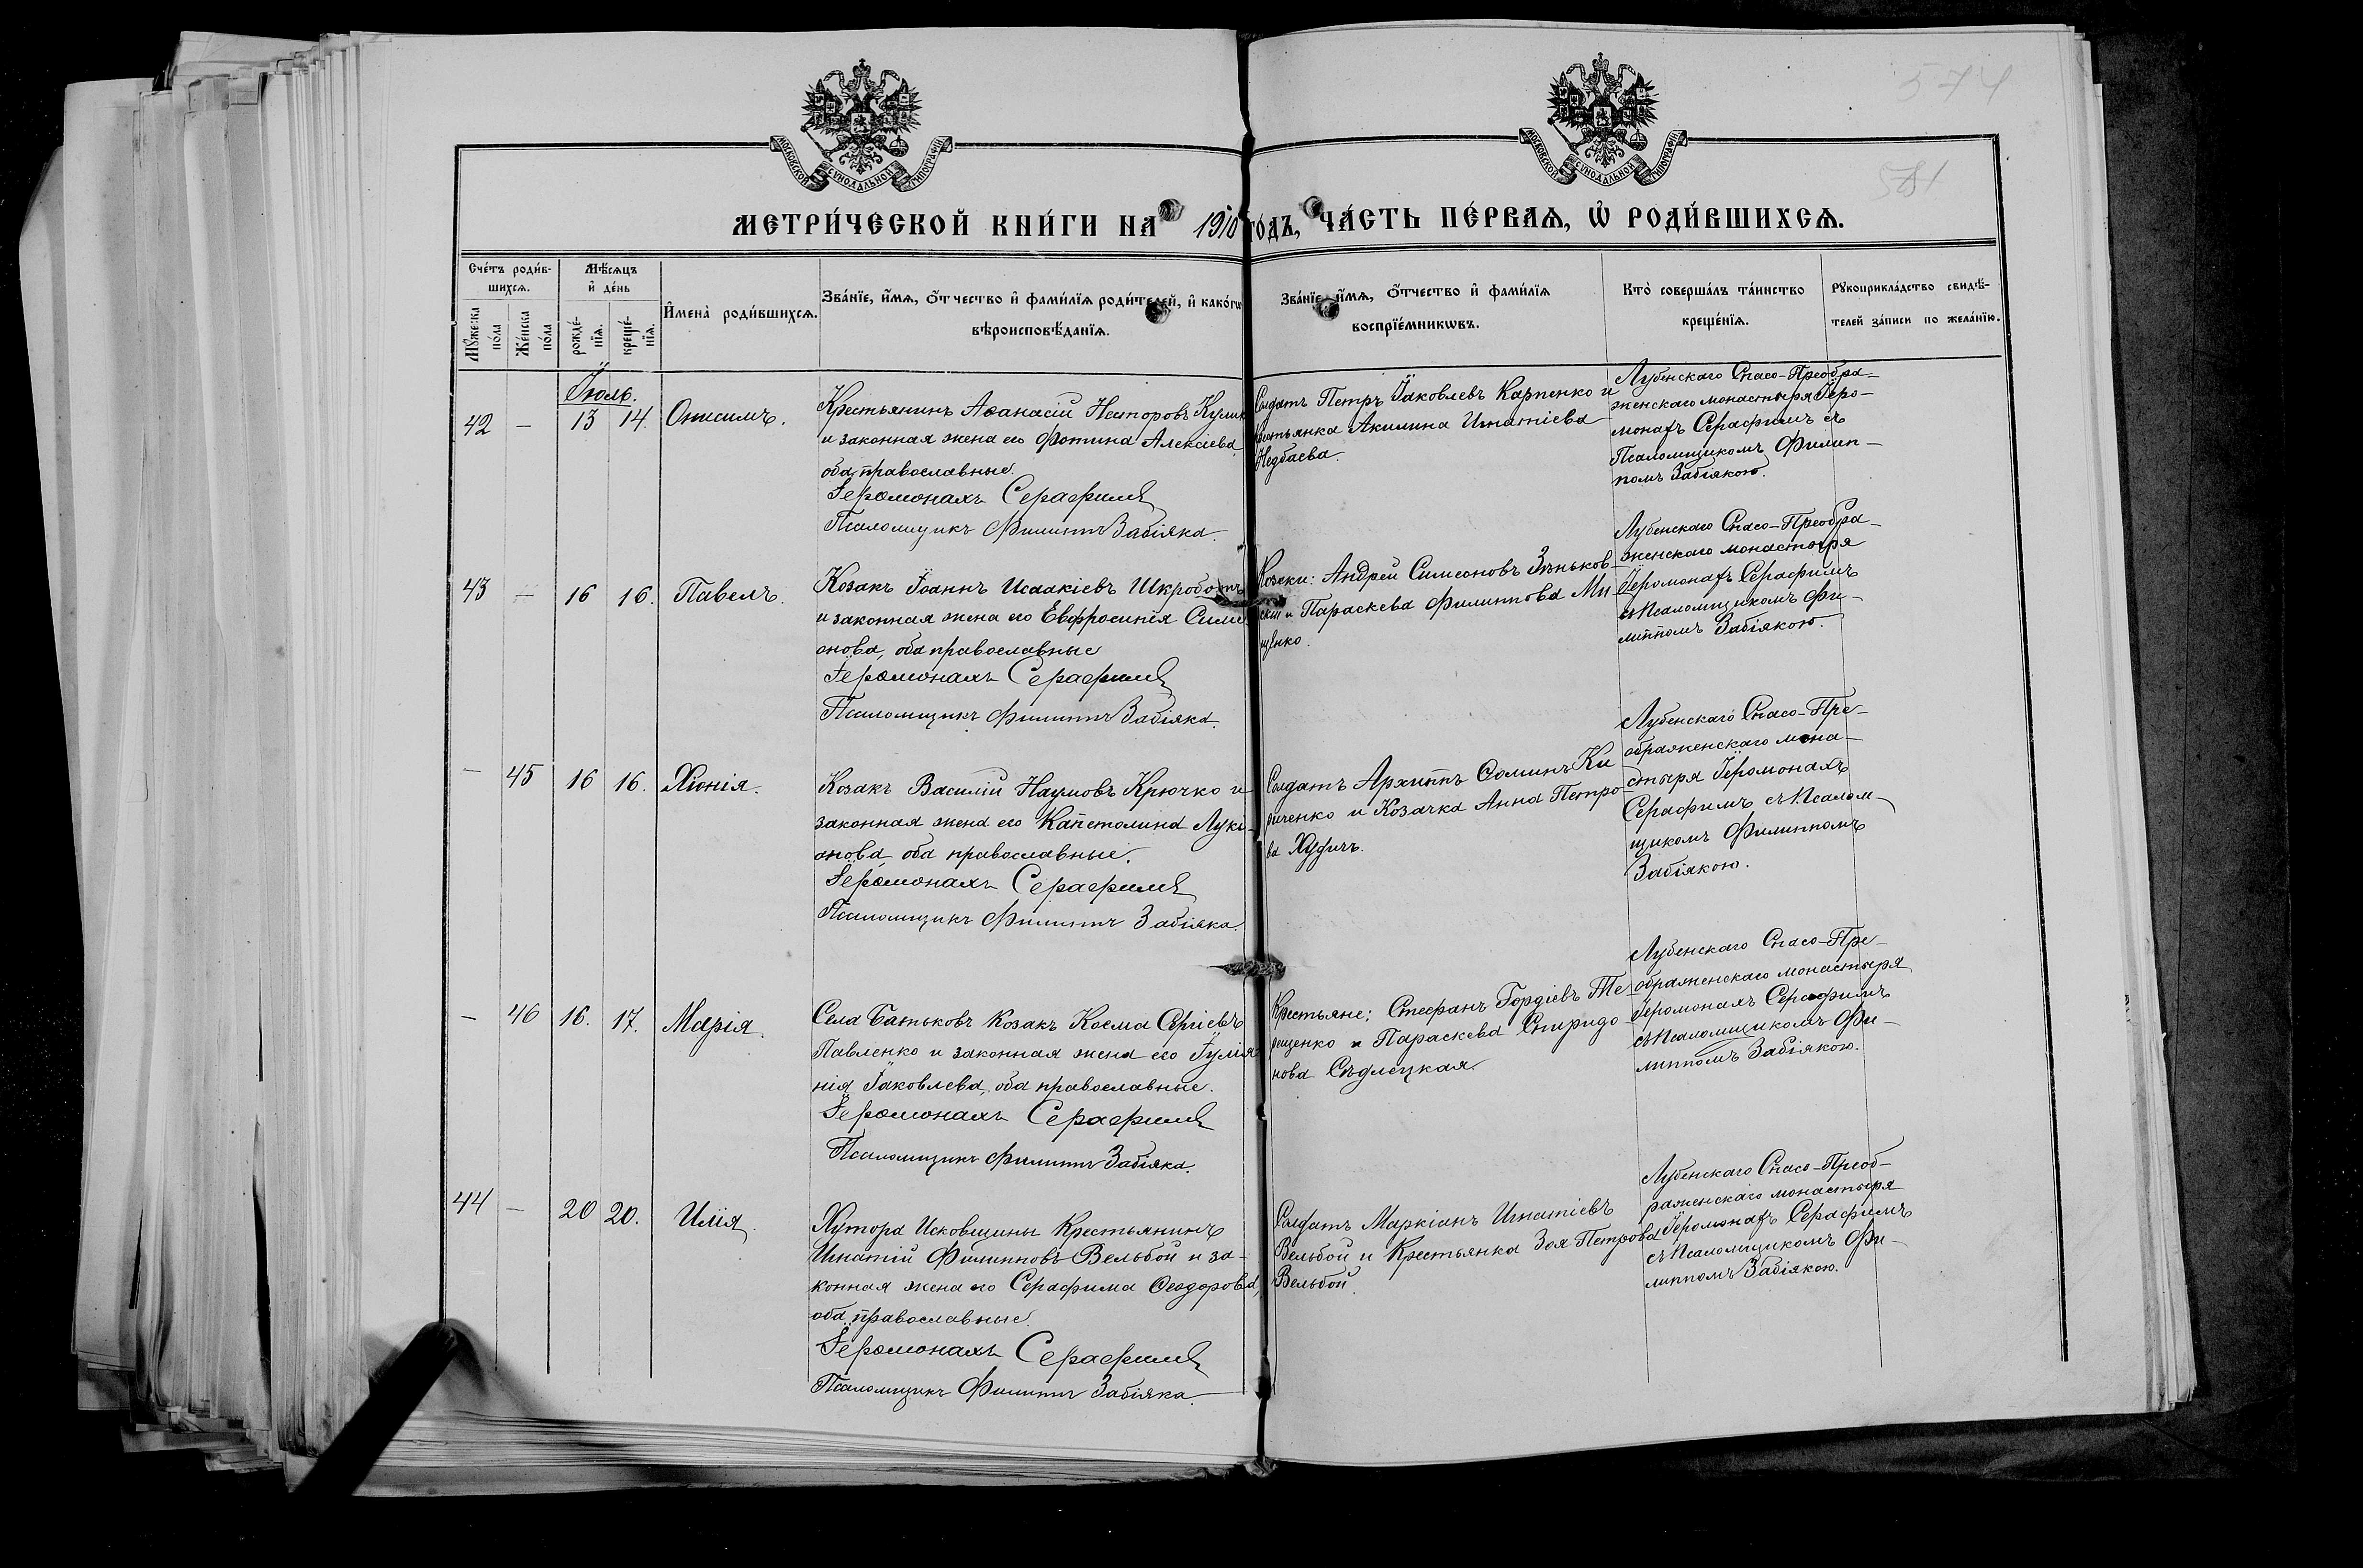 574
581
МОСКОВСКОЙ СѴНОДАЛЬНОЙ ТИПОГРАФІИ
МОСКОВСКОЙ СѴНОДАЛЬНОЙ ТИПОГРАФІИ
МЕТРИ́ЧЕСКОЙ КНИ́ГИ НА 1910 ГО́ДЪ, ЧА́СТЬ ПЕ́РВАѦ, Ѡ РОДИ́ВШИХСѦ.
Сче́тъ роди́в-
шихсѧ.
Мꙋ́жеска
по́ла
Же́нска
по́ла
Мѣ́сѧцъ
и҆ де́нь
рожде́-
нїѧ.
креще́-
нїѧ.
И҆мена̀ роди́вшихсѧ.
Зва́нїе, и҆́мѧ, ѻ҆́тчество и҆ фами́лїѧ роди́телей, и҆ како́гѡ
вѣроисповѣ́данїѧ.
Зва́нїе, и҆́мѧ, ѻ҆́тчество и҆ фами́лїѧ
воспрїе́мникѡвъ.
Кто̀ соверша́лъ та́инство
креще́нїѧ.
Рꙋкоприкла́дство свидѣ́-
телей за́писи по жела́нїю.
Іюль.
42 — 13 14. Онисимъ.
Крестьянинъ Аѳанасій Несторовъ Кулик
и законная жена его Фотина Алексіева,
оба православные.
Іеромонахъ Серафимъ
Псаломщикъ Филиппъ Забіяка.
Солдатъ Петръ Іаковлевъ Карпенко и
Крестьянка Акилина Игнатіева
Недбаева.
Лубенскаго Спасо-Преобра-
женскаго монастыря Іеро-
монахъ Серафимъ съ
Псаломщикомъ Филип-
помъ Забіякою.
43 — 16 16. Павелъ.
Козакъ Іоаннъ Исаакіевъ Шкроботъ
и законная жена его Евфросинія Симе
онова, оба православные
Іеромонахъ Серафимъ
Псаломщикъ Филиппъ Забіяка.
Козаки: Андрей Симеоновъ Зѣньков-
скій и Параскева Филиппова Ми-
щенко.
Лубенскаго Спасо-Преобра-
женскаго монастыря
Іеромонахъ Серафимъ
съ Псаломщикомъ Фи-
липпомъ Забіякою.
— 45 16 16. Хіонія.
Козакъ Василій Наумовъ Крючко и
законная жена его Капетолина Лукі-
онова, оба православные.
Іеромонахъ Серафимъ
Псаломщикъ Филиппъ Забіяка.
Солдатъ Архиппъ Ѳоминъ Ки
риченко и Козачка Анна Петро-
ва Худичъ.
Лубенскаго Спасо-Пре-
ображенскаго мона-
стыря Іеромонахъ
Серафимъ съ Псалом-
щикомъ Филиппомъ
Забіякою.
— 46 16. 17. Марія.
Села Батьковъ Козакъ Косма Сергіевъ
Павленко и законная жена его Іуліа
нія Іаковлева, оба православные.
Іеромонахъ Серафимъ
Псаломщикъ Филиппъ Забіяка.
Крестьяне: Стефанъ Гордіевъ Те-
рещенко и Параскева Спиридо-
нова Сѣдлецкая.
Лубенскаго Спасо-Пре-
ображенскаго монастыря
Іеромонахъ Серафимъ
съ Псаломщикомъ Фи-
липпомъ Забіякою.
44 — 20 20. Илія.
Хутора Исковщины Крестьянинъ
Игнатій Филипповъ Вельбой и за-
конная жена его Серафима Ѳеодорова,
оба православные.
Іеромонахъ Серафимъ
Псаломщикъ Филиппъ Забіяка.
Солдатъ Маркіанъ Игнатіевъ
Вельбой и Крестьянка Зоя Петрова
Вельбой.
Лубенскаго Спасо-Преоб-
раженскаго монастыря
Іеромонахъ Серафимъ
съ Псаломщикомъ Фи-
липпомъ Забіякою.